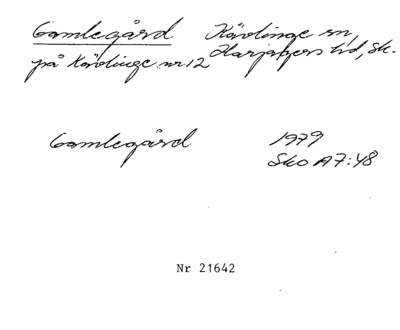 Gamlegård Kävlinge sn,
på Kävlinge nr 12 Harjagers hd, Sk.
Gamlegård 1979
Sko A7:48
Nr 21642